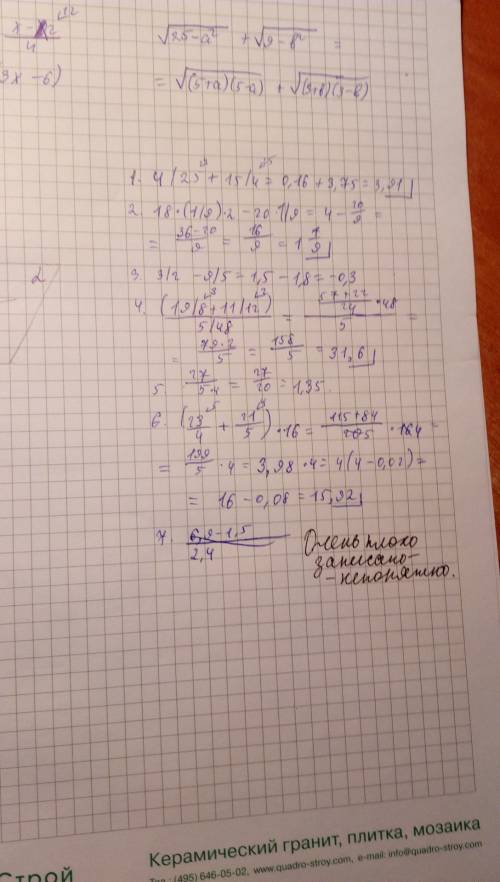 x - 2
4
3x - 6)
√25-a² + √9-b² =
= √(5+a)(5-a) + √(3+b)(3-b)
1. 4/25 + 15/4 = 0,16 + 3,75 = 3,91
2. 18·(1/9)·2 - 20·1/9 = 4 - 20/9 =
= 36-20/9 = 16/9 = 1 7/9
3. 3/2 - 9/5 = 1,5 - 1,8 = -0,3
4. (19/8 + 11/12) / 5/48 = 57+22/24 · 48 / 5 =
= 79·2/5 = 158/5 = 31,6
5. 27/5·4 = 27/20 = 1,35
6. (23/4 + 21/5)·16 = 115+84/5 · 4 =
= 199/5 · 4 = 3,98·4 = 4(4-0,02) =
= 16 - 0,08 = 15,92
7. 6,9-1,5
2,4
Очень плохо
записано-
-непонятно.
2
Строй
Керамический гранит, плитка, мозаика
Тел.: (495) 646-05-02, www.quadro-stroy.com, e-mail: info@quadro-stroy.com